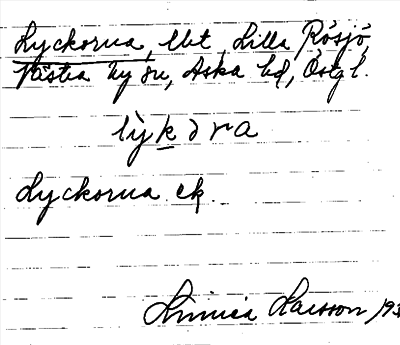 Lyckorna, lht, Lilla Rösjö,
Västra Ny sn, Aska hd, Östgl.
lỳkɔra
Lyckorna ek.
Linnéa Larsson 193